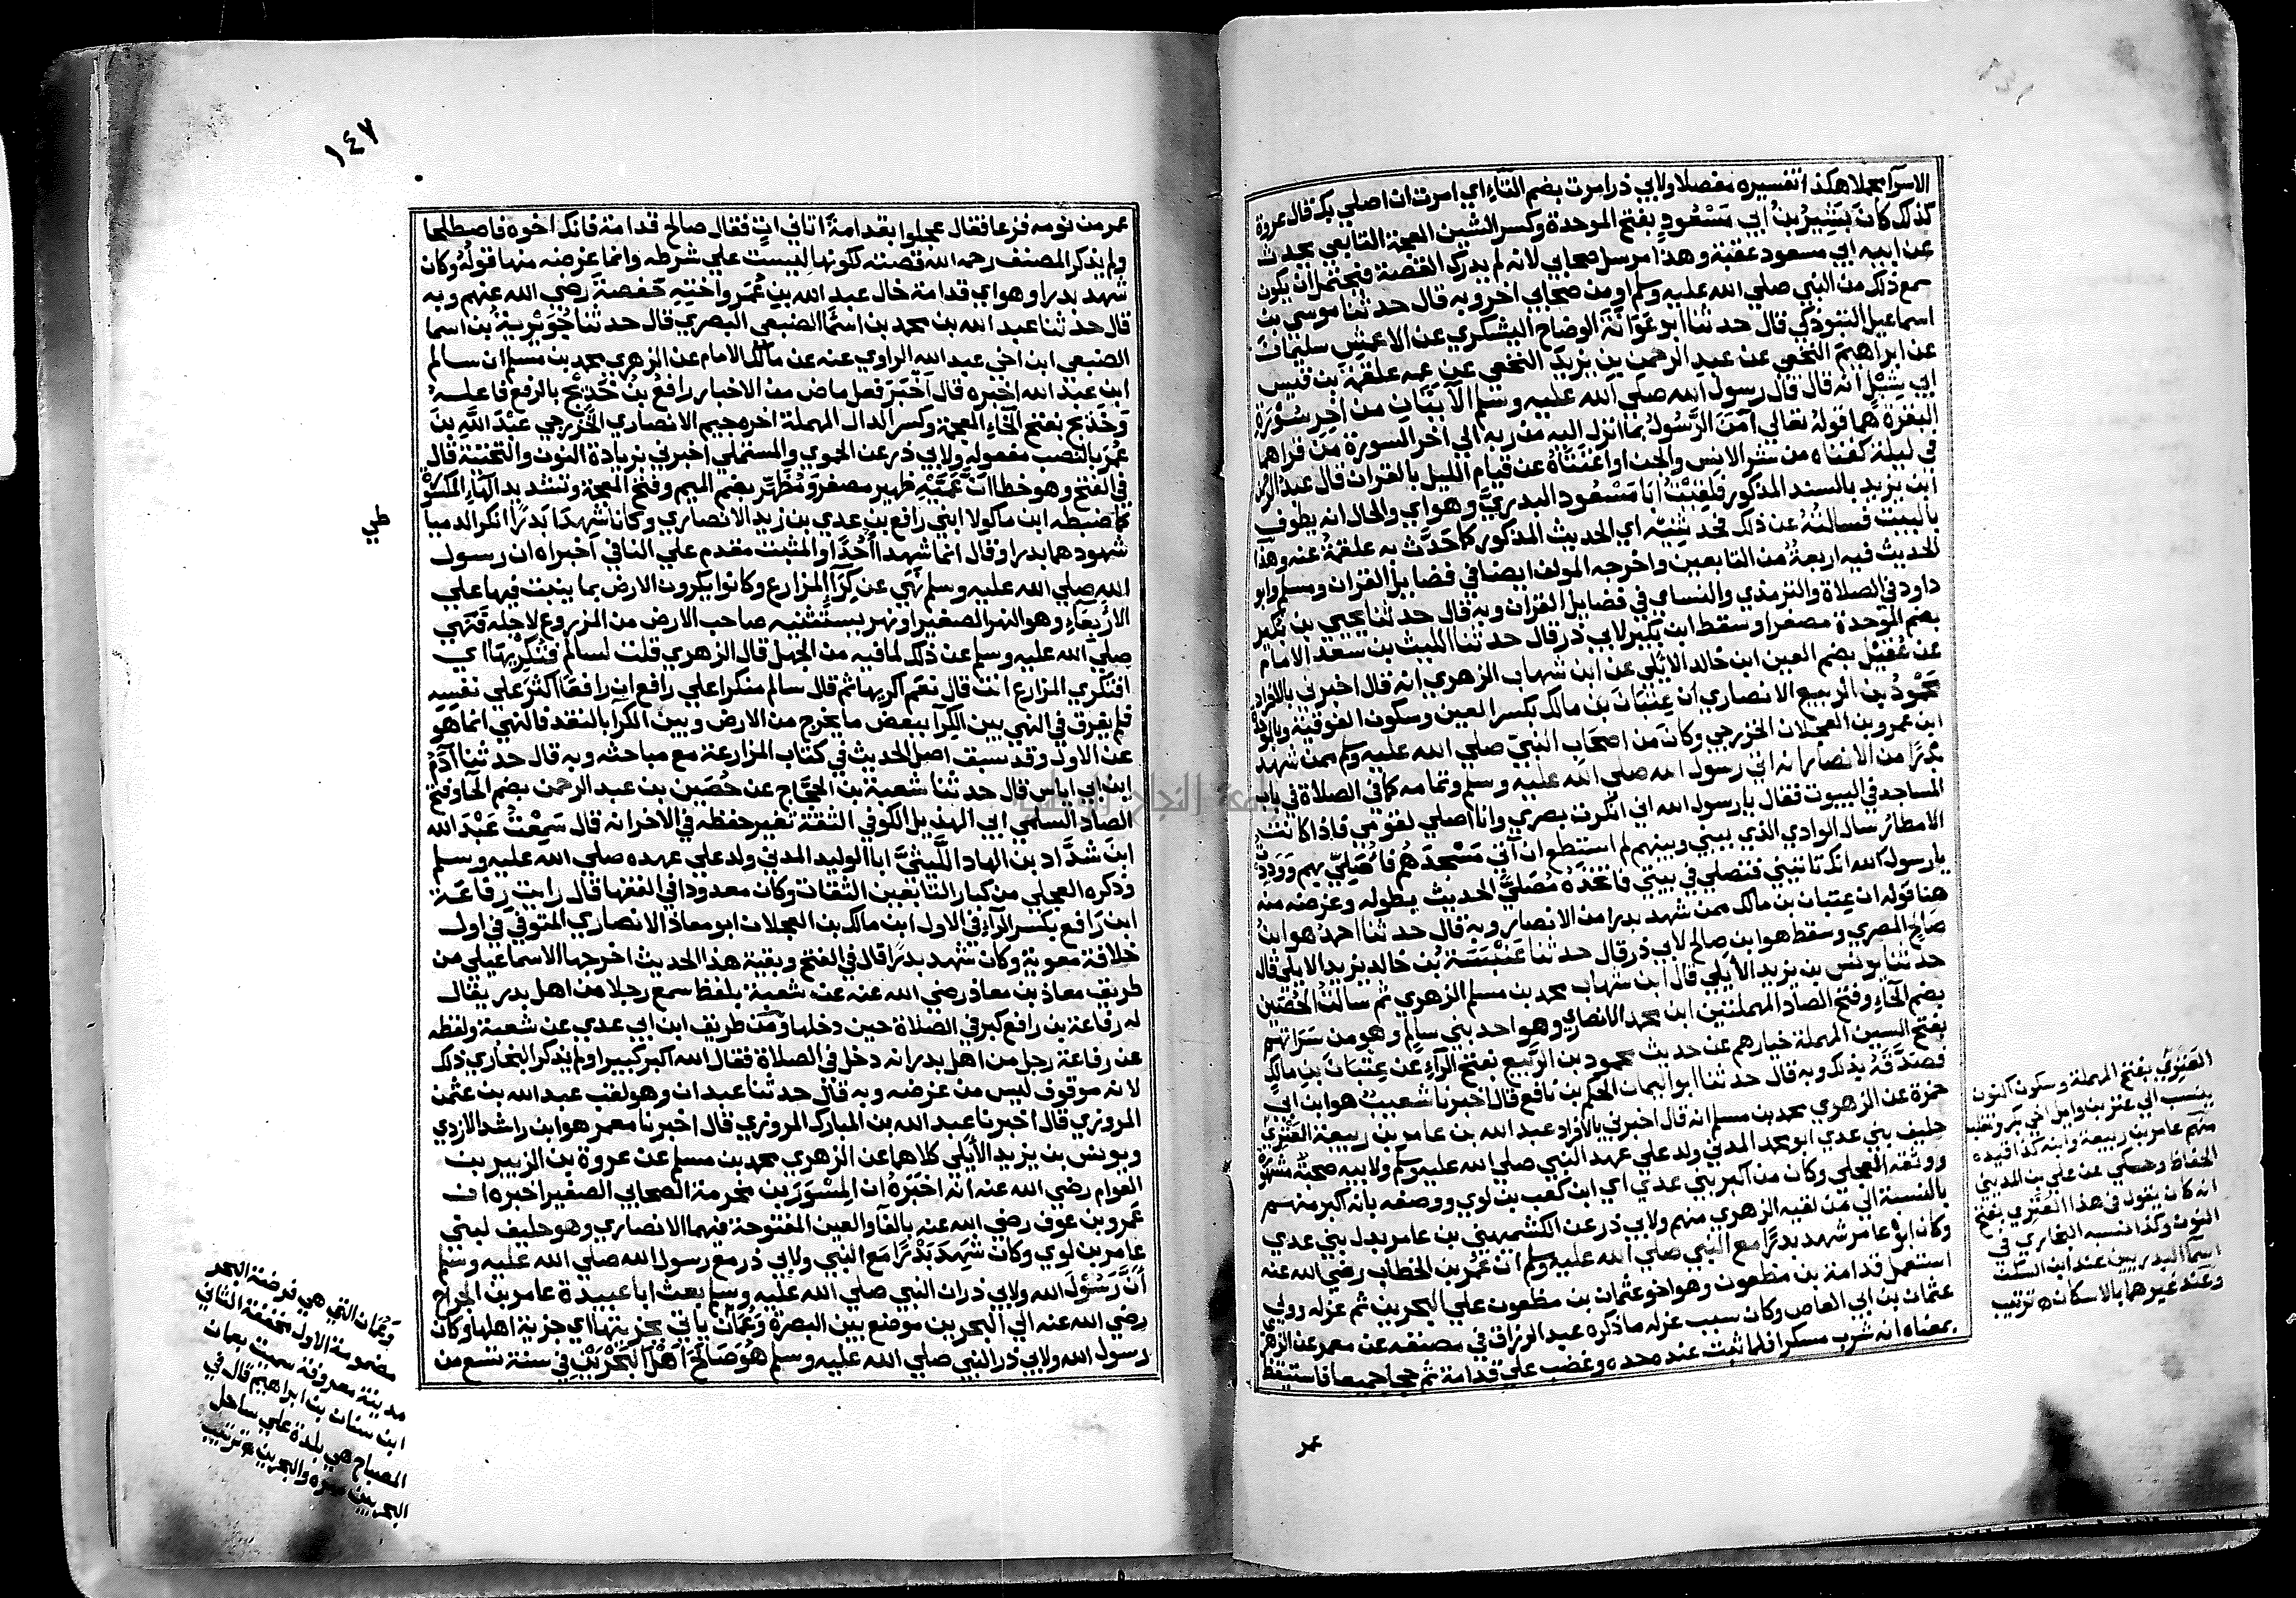 الاسرآ مجملا هكذا تفسيره مفصلا ولابي ذر امرت بضم التاء اي امرت ان اصلي بك قال عروة
كذلك كان بشير بن ابي مسعود بفتح الموحدة وكسر الشين المعجمة التابعي يحدث
عن ابيه ابي مسعود عقبة وهذا مرسل صحابي لانه لم يدرك القصة فيحتمل ان يكون
سمع ذلك من النبي صلي الله عليه وسلم او من صحابي اخر وبه قال حدثنا موسي بن
اسماعيل التبوذكي قال حدثنا ابو عوانة الوضاح اليشكري عن الاعمش سليمان
عن ابراهيم النخعي عن عبد الرحمن بن يزيد النخعي عن عمه علقمة بن قيس
ابي شبل انه قال قال رسول الله صلي الله عليه وسلم الآيتان من اخر سورة
البقرة هما قوله تعالي آمن الرسول بما انزل اليه من ربه الي اخر السورة من قراهما
في ليلة كفتاه من شر الانس والجن او اغنتاه عن قيام الليل بالقران قال عبد الرحمن
ابن يزيد بالسند المذكور فلقيت ابا مسعود البدري وهو اي والحال انه يطوف
بالبيت فسالته عن ذلك فحدثنيه اي الحديث المذكور كما حدث به علقمة عنه وهذا
الحديث فيه اربعة من التابعين واخرجه المولف ايضا في فضايل القران ومسلم وابو
داود في الصلاة والترمذي والنساي في فضايل القران وبه قال حدثنا يحيي بن بكير
بضم الموحدة مصغرا وسقط ابن بكير لابي ذر قال حدثنا الليث بن سعد الامام
عن عقيل بضم العين ابن خالد الايلي عن ابن شهاب الزهري انه قال اخبرني بالافراد
محمود بن الربيع الانصاري ان عتبان بن مالك بكسر العين وسكون الفوقية وبالموحدة
ابن عمرو بن العجلان الخزرجي وكان من اصحاب النبي صلي الله عليه وسلم ممن شهد
بدرا من الانصار انه اتي رسول الله صلي الله عليه وسلم وتمامه كما في الصلاة في باب
المساجد في البيوت فقال يا رسول الله اني انكرت بصري وانا اصلي لقومي فاذا كانت
الامطار سال الوادي الذي بيني وبينهم لم استطع ان آتي مسجدهم فاصلي بهم ووددت
يا رسول الله انك تاتيني فتصلي في بيتي فاتخذه مصلي الحديث بطوله وغرضه منه
هنا قوله ان عتبان بن مالك ممن شهد بدرا من الانصار وبه قال حدثنا احمد هو ابن
صالح المصري وسقط هو ابن صالح لابي ذر قال حدثنا عنبسة بن خالد بن يزيد الايلي قال
حدثنا يونس بن يزيد الايلي قال ابن شهاب محمد بن مسلم الزهري ثم سالت الحصين
بضم الحاء وفتح الصاد المهملتين ابن محمد الانصاري وهو احد بني سالم وهو من سراتهم
بفتح السين المهملة خيارهم عن حديث محمود بن الربيع بفتح الرآء عن عتبان بن مالك
فصدقه بذلك وبه قال حدثنا ابو اليمان الحكم بن نافع قال اخبرنا شعيب هو ابن ابي
حمزة عن الزهري محمد بن مسلم انه قال اخبرني بالافراد عبد الله بن عامر بن ربيعة العنزي
حليف بني عدي ابو محمد المدني ولد علي عهد النبي صلي الله عليه وسلم ولابيه صحبة مشهورة
ووثقه العجلي وكان من اكبر بني عدي اي ابن كعب بن لوي ووصفه بانه اكبر منهم
بالنسبة الي من لقيه الزهري منهم ولابي ذر عن الكشميهني بن عامر بدل بني عدي
وكان ابوه عامر شهد بدرا مع النبي صلي الله عليه وسلم ان عمر بن الخطاب رضي الله عنه
استعمل قدامة بن مظعون وهو اخو عثمان بن مظعون علي البحرين ثم عزله وولي
عثمان بن ابي العاص وكان سبب عزله ما ذكره عبد الرزاق في مصنفه عن معمر عن الزهري
بمعناه انه شرب مسكرا فلما ثبت عنده حده وغضب علي قدامة ثم حجا جميعا فاستيقظ
عمر
العنزي بفتح المهملة وسكون النون
ينسب الي عنز بن وايل اخي بكر وتغلب
منهم عامر بن ربيعة وابنه كذا قيده
الحفاظ وحكي عن علي بن المديني
انه كان يقول في هذا العنزي بفتح
النون وكذا نسبه البخاري في
اسمآ البدريين عند ابن السكن
وعند غيرهما بالاسكان ه ترتيب
١٤٧
عمر من نومه فزعا فقال عجلوا بقدامة اتاني آت فقال صالح قدامة فانك اخوه فاصطلحا
ولم يذكر المصنف رحمه الله قصته لكونها ليست علي شرطه وانما غرضه منها قوله وكان
شهد بدرا وهو اي قدامة خال عبد الله بن عمر واخته حفصة رضي الله عنهم وبه
قال حدثنا عبد الله بن محمد بن اسمآ الضبعي البصري قال حدثنا جويرية بن اسما
الضبعي ابن اخي عبد الله الراوي عنه عن مالك الامام عن الزهري محمد بن مسلم ان سالم
ابن عبد الله اخبره قال اخبر فعل ماض من الاخبار رافع بن خديج بالرفع فاعله
وخديج بفتح الخاء المعجمة وكسر الدال المهملة اخره جيم الانصاري الخزرجي عبد الله بن
عمر بالنصب مفعوله ولابي ذر عن الحموي والمستملي اخبرني بزيادة النون والتحتية قال
في الفتح وهو خطا ان عميه ظهير مصغرو مظهر بضم الميم وفتح المعجمة وتشديد الهاء المكسورة
كما ضبطه ابن ماكولا ابني رافع بن عدي بن زيد الانصاري وكانا شهدا بدرا انكر الدمياطي
شهودهما بدرا وقال انما شهدا احدا والمثبت مقدم علي النافي اخبراه ان رسول
الله صلي الله عليه وسلم نهي عن كرآ المزارع وكانوا يكرون الارض بما ينبت فيها علي
الاربعاء وهو النهر الصغير او نهر يستثنيه صاحب الارض من المزروع لاجله فنهي
صلي الله عليه وسلم عن ذلك لما فيه من الجهل قال الزهري قلت لسالم فتكريها اي
افتكري المزارع انت قال نعم اكريها ثم قال سالم منكرا علي رافع ان رافعا اكثر علي نفسه
فلم يفرق في النهي بين الكرآ ببعض ما يخرج من الارض وبين الكرآ بالنقد فالنهي انما هو
عن الاول وقد سبق اصل الحديث في كتاب المزارعة مع مباحثه وبه قال حدثنا آدم
ابن ابي اياس قال حدثنا شعبة بن الحجاج عن حصين بن عبد الرحمن بضم الحآ وفتح
الصاد السلمي ابي الهذيل الكوفي الثقة تغير حفظه في الاخر انه قال سمعت عبد الله
ابن شداد بن الهاد الليثي ابا الوليد المدني ولد علي عهده صلي الله عليه وسلم
وذكره العجلي من كبار التابعين الثقات وكان معدودا في الفقها قال رايت رفاعة
ابن رافع بكسر الرآء في الاول ابن مالك بن العجلان ابو معاذ الانصاري المتوفي في اول
خلافة معوية وكان شهد بدرا قال في الفتح وبقية هذا الحديث اخرجها الاسماعيلي من
طريق معاذ بن معاذ رضي الله عنه عن شعبة بلفظ سمع رجلا من اهل بدر يقال
له رفاعة بن رافع كبر في الصلاة حين دخلها ومن طريق ابن ابي عدي عن شعبة ولفظه
عن رفاعة رجل من اهل بدر انه دخل في الصلاة فقال الله اكبر كبيرا ولم يذكر البخاري ذلك
لانه موقوف ليس من غرضه وبه قال حدثنا عبدان وهو لقب عبد الله بن عثمن
المروزي قال اخبرنا عبد الله بن المبارك المروزي قال اخبرنا معمر هو ابن راشد الازدي
ويونس بن يزيد الايلي كلاهما عن الزهري محمد بن مسلم عن عروة بن الزبير بن
العوام رضي الله عنه انه اخبره ان المسور بن مخرمة الصحابي الصغير اخبره ان
عمرو بن عوف رضي الله عنه بالفآ والعين المفتوحة فيهما الانصاري وهو حليف لبني
عامر بن لوي وكان شهد بدرا مع النبي ولابي ذر مع رسول الله صلي الله عليه وسلم
ان رسول الله ولابي ذر ان النبي صلي الله عليه وسلم بعث ابا عبيدة عامر بن الجراح
رضي الله عنه الي البحرين موضع بين البصرة وعمان ياتي بجزيتها اي جزية اهلها وكان
رسول الله ولابي ذر النبي صلي الله عليه وسلم هو صالح اهل البحرين في سنة تسع من
طي
وعمان التي هي فرضة البحر
مضمومة الاول مخففة الثاني
مدينة معروفة سميت بعمان
ابن سنان بن ابراهيم قال في
المصباح هي بلدة علي ساحل
البحر بين البصره والبحرين ه ترتيب
جامعة النجاح الوطنية